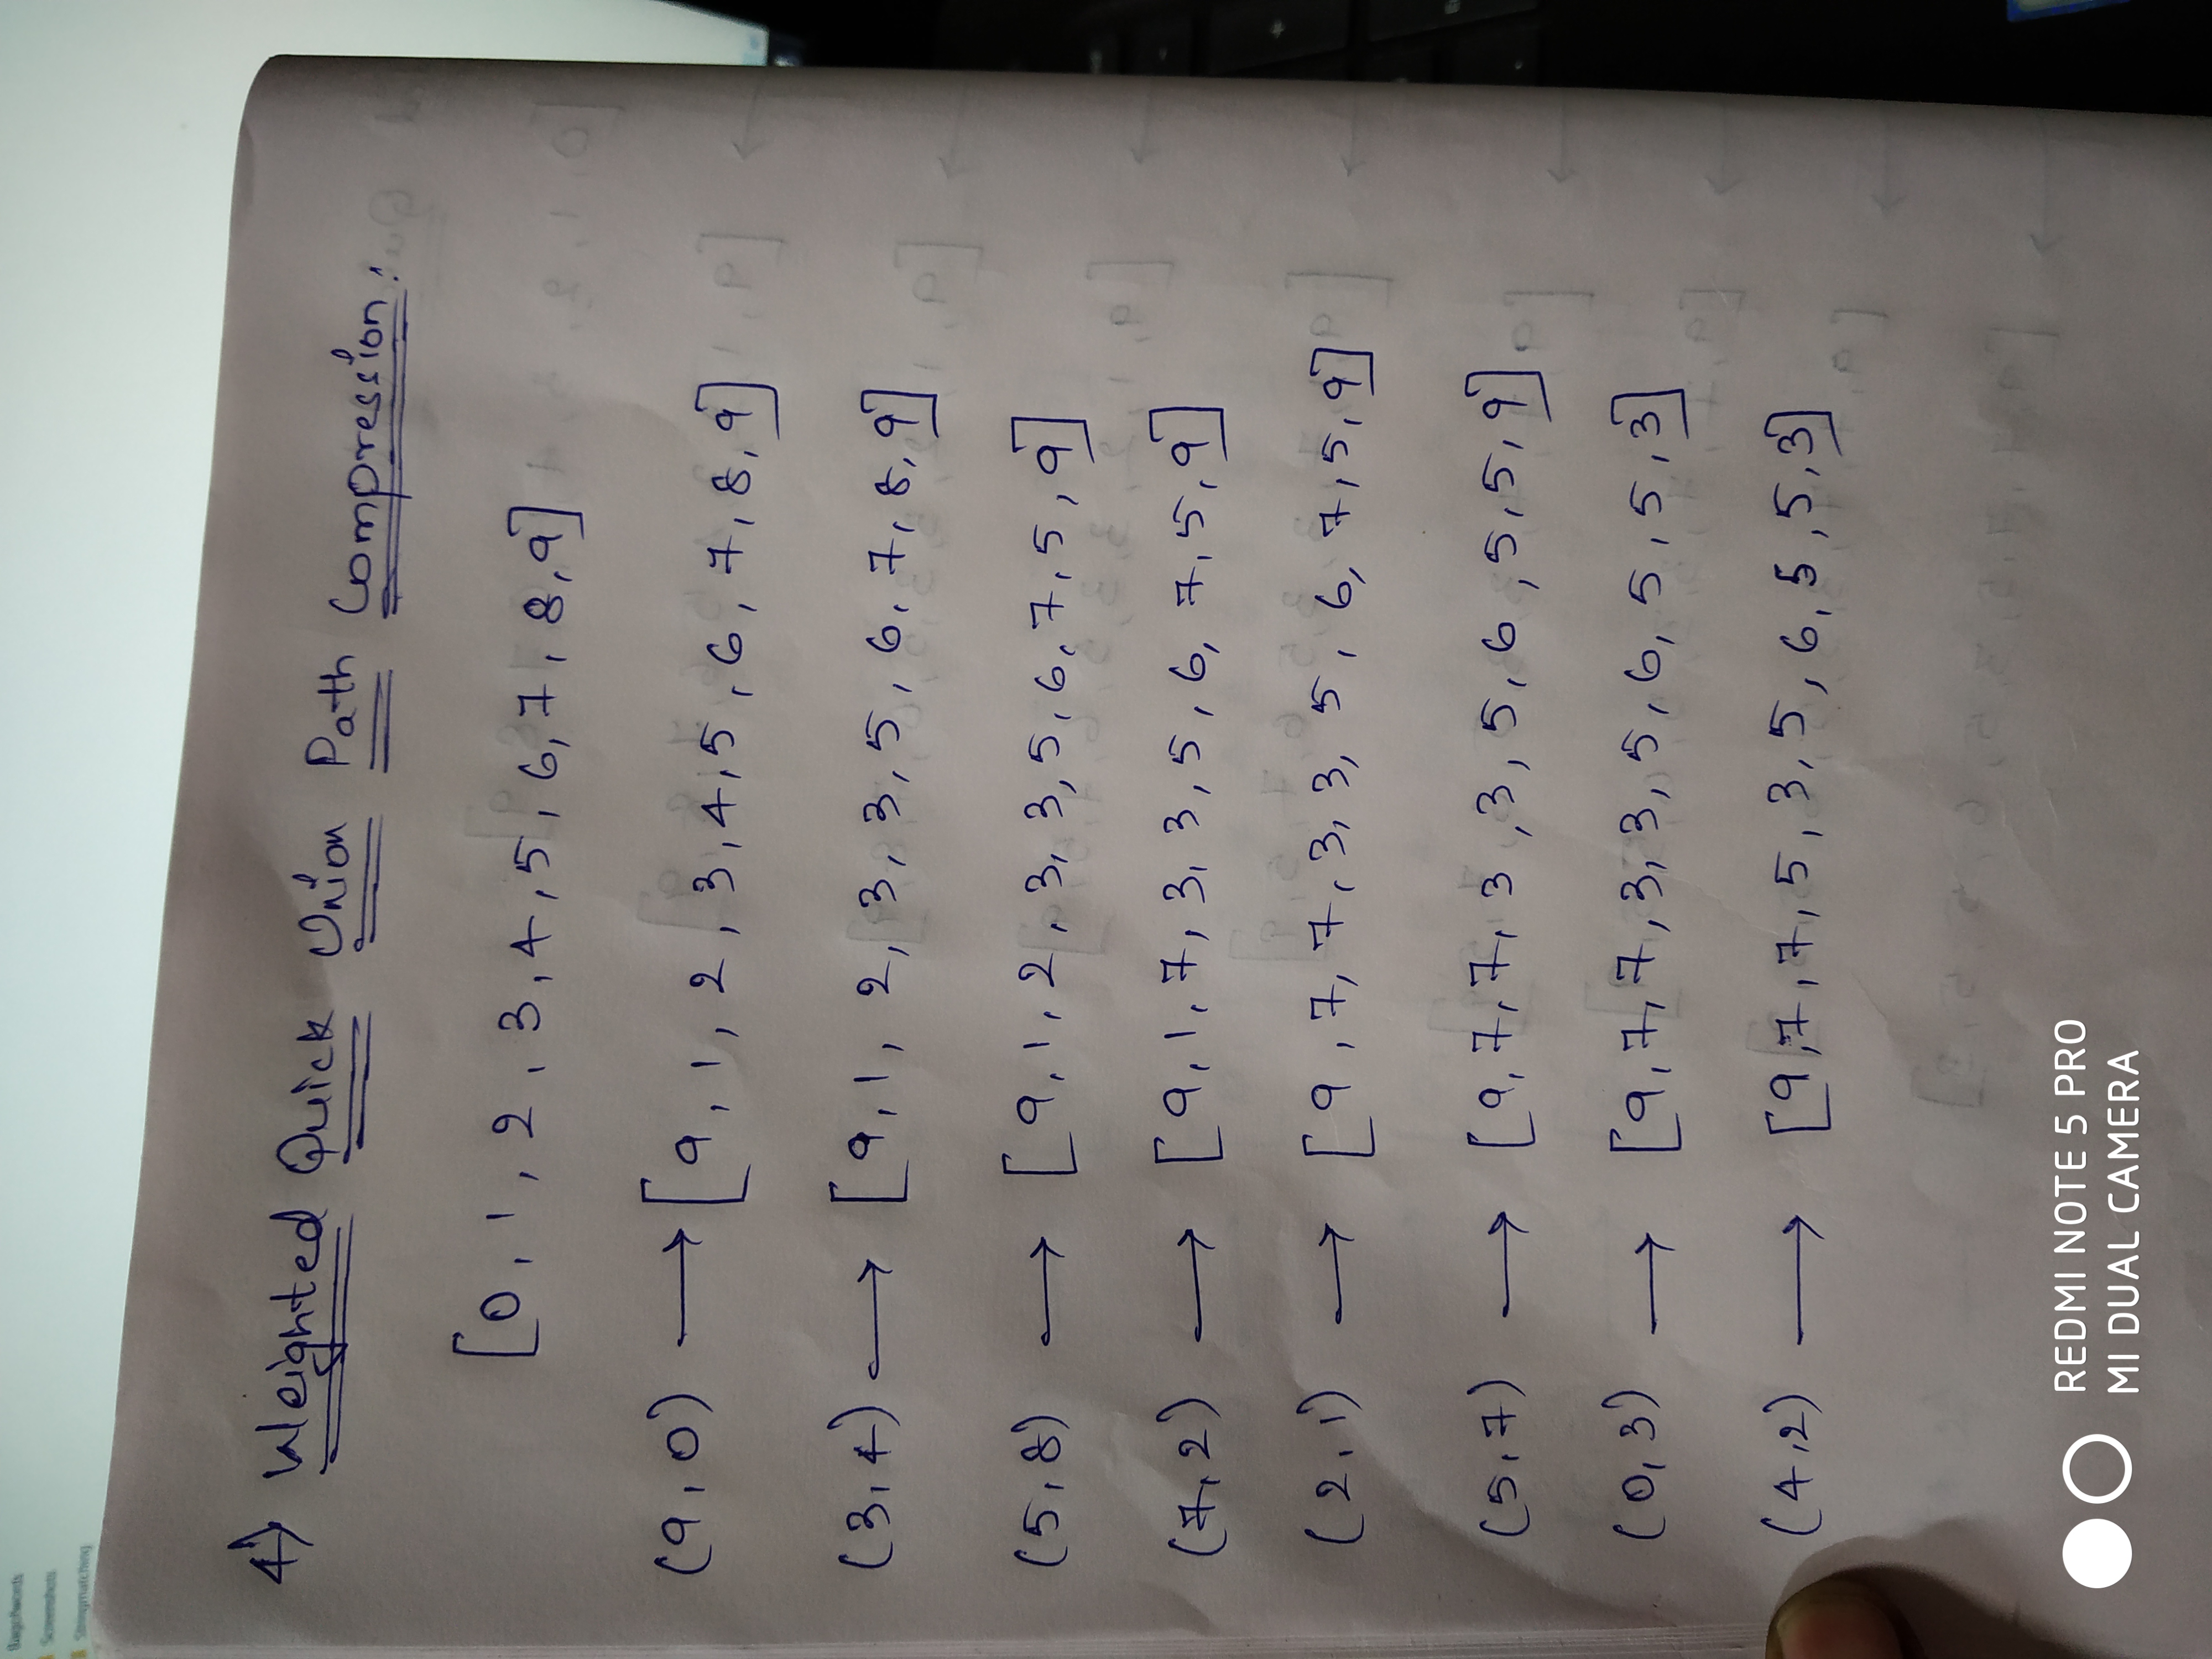 Bagofwords
Screenshots
Stringmatching
4) Weighted Quick Union Path Compression:
[0, 1, 2, 3, 4, 5, 6, 7, 8, 9]
(9, 0) → [9, 1, 2, 3, 4, 5, 6, 7, 8, 9]
(3, 4) → [9, 1, 2, 3, 3, 5, 6, 7, 8, 9]
(5, 8) → [9, 1, 2, 3, 3, 5, 6, 7, 5, 9]
(7, 2) → [9, 1, 7, 3, 3, 5, 6, 7, 5, 9]
(2, 1) → [9, 7, 7, 3, 3, 5, 6, 7, 5, 9]
(5, 7) → [9, 7, 7, 3, 3, 5, 6, 5, 5, 9]
(0, 3) → [9, 7, 7, 3, 3, 5, 6, 5, 5, 3]
(4, 2) → [9, 7, 7, 5, 3, 5, 6, 5, 5, 3]
REDMI NOTE 5 PRO
MI DUAL CAMERA